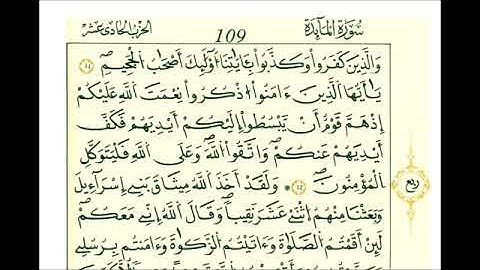 سُورَةُ الْمَآئِدَةِ 109 الحزب الحادى عشر
وَالَّذِينَ كَفَرُوا۟ وَكَذَّبُوا۟ بِـَٔايَٰتِنَآ أُو۟لَٰٓئِكَ أَصْحَٰبُ الْجَحِيمِ
يَٰٓأَيُّهَا الَّذِينَ ءَامَنُوا۟ اذْكُرُوا۟ نِعْمَتَ اللَّهِ عَلَيْكُمْ
إِذْ هَمَّ قَوْمٌ أَنْ يَبْسُطُوٓا۟ إِلَيْكُمْ أَيْدِيَهُمْ فَكَفَّ
أَيْدِيَهُمْ عَنكُمْ وَاتَّقُوا۟ اللَّهَ وَعَلَى اللَّهِ فَلْيَتَوَكَّلِ
الْمُؤْمِنُونَ وَلَقَدْ أَخَذَ اللَّهُ مِيثَٰقَ بَنِىٓ إِسْرَآءِيلَ
ربع
وَبَعَثْنَا مِنْهُمُ اثْنَىْ عَشَرَ نَقِيبًا وَقَالَ اللَّهُ إِنِّى مَعَكُمْ
لَئِنْ أَقَمْتُمُ الصَّلَوٰةَ وَءَاتَيْتُمُ الزَّكَوٰةَ وَءَامَنتُم بِرُسُلِى